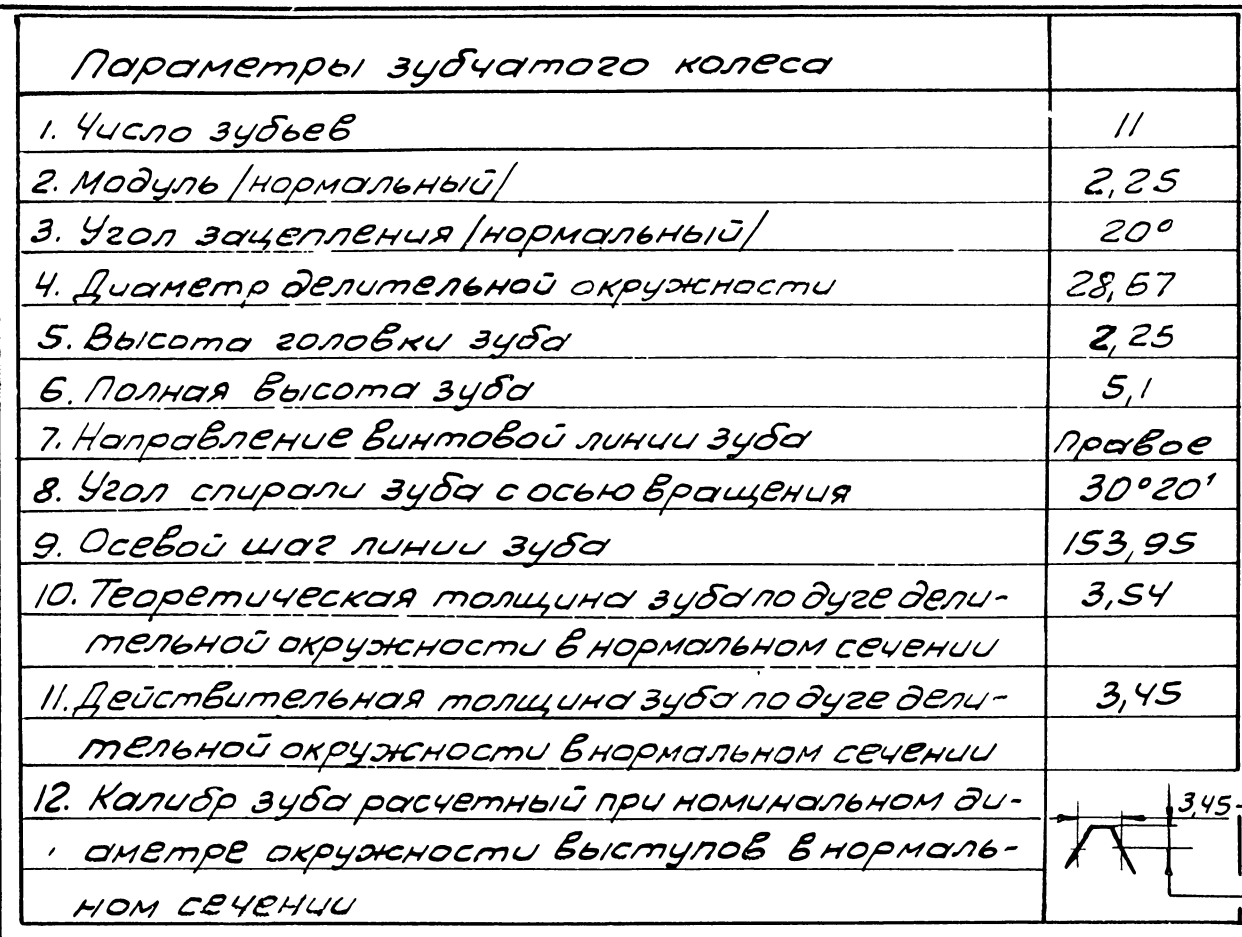 Параметры зубчатого колеса
1. Число зубьев 11
2. Модуль /нормальный/ 2,25
3. Угол зацепления /нормальный/ 20°
4. Диаметр делительной окружности 28,67
5. Высота головки зуба 2,25
6. Полная высота зуба 5,1
7. Направление винтовой линии зуба правое
8. Угол спирали зуба с осью вращения 30°20'
9. Осевой шаг линии зуба 153,95
10. Теоретическая толщина зуба по дуге дели- 3,54
тельной окружности в нормальном сечении
11. Действительная толщина зуба по дуге дели- 3,45
тельной окружности в нормальном сечении
12. Калибр зуба расчетный при номинальном ди- 3,45-
аметре окружности выступов в нормаль-
ном сечении